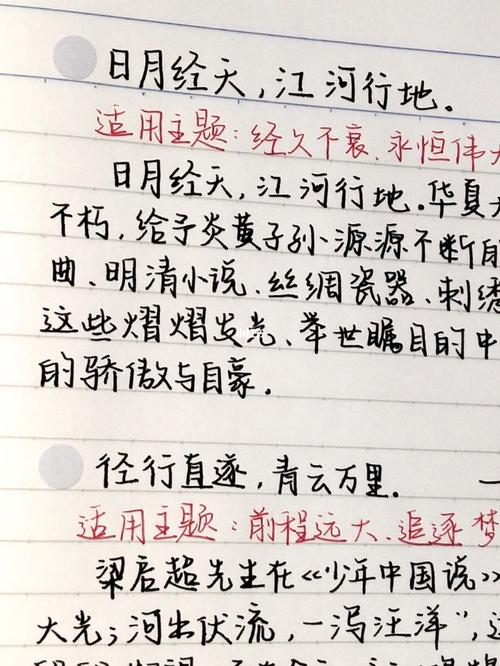 日月经天，江河行地。
适用主题：经久不衰、永恒伟大
日月经天，江河行地。华夏
不朽，给予炎黄子孙源源不断的
曲、明清小说、丝绸瓷器、刺绣
这些熠熠发光、举世瞩目的中
的骄傲与自豪。
径行直遂，青云万里。
适用主题：前程远大、追逐梦
梁启超先生在《少年中国说》
大光；河出伏流，一泻汪洋”，这